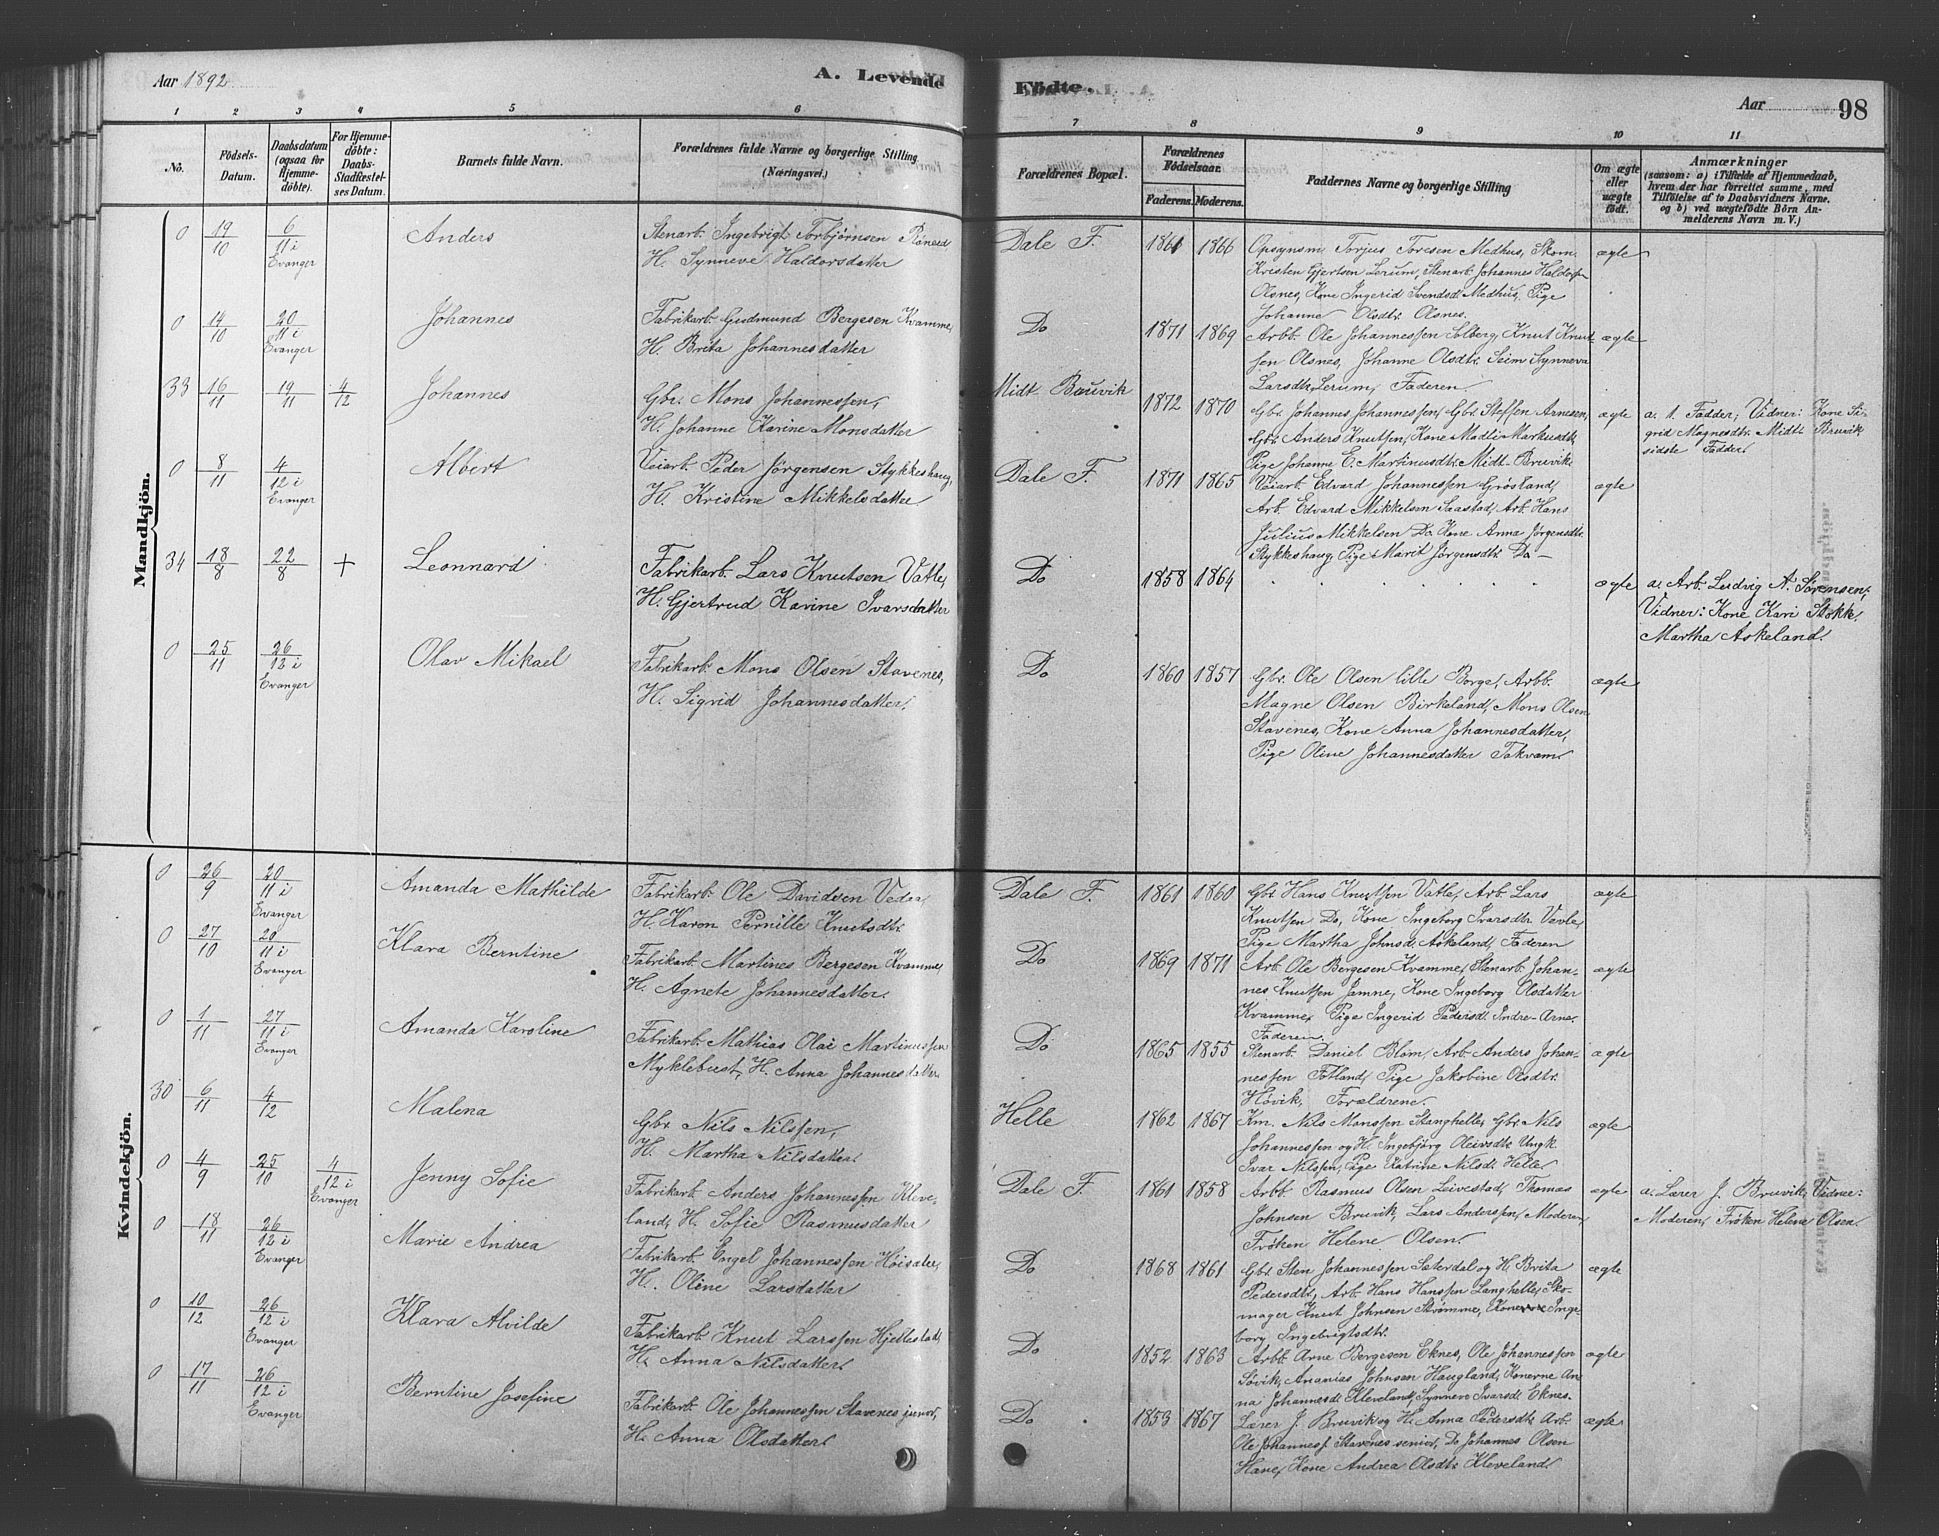 Aar 1892
A. Levende
Födte.
Aar
98
1 2 3 4 5 6 7 8 9 10 11
No.
Födsels-
Datum.
Daabsdatum
(ogsaa for
Hjemme-
döbte).
For Hjemme-
döbte:
Daabs-
Stadfæstel-
ses Datum.
Barnets fulde Navn.
Forældrenes fulde Navne og borgerlige Stilling
(Næringsvei.)
Forældrenes Bopæl.
Forældrenes
Födselsaar.
Faderens. Moderens.
Faddernes Navne og borgerlige Stilling
Om ægte
eller
uægte
födt.
Anmærkninger
(saasom: a) i Tilfælde af Hjemmedaab,
hvem der har forrettet samme, med
Tilföielse af to Daabsvidners Navne.
og b) ved uægtefödte Börn An-
melderens Navn m. V.)
Mandkjön.
0 19/10 6/11 i Evanger
Anders
Stenarb. Ingebrigt Torbjørnsen Rönesd
H. Synneve Haldorsdatter
Dale F. 1861 1866
Opsynsm. Torjus Toresen Medhus, Skom.
Kristen Gjertsen Lerum, Stenarb. Johannes Haldorsen
Olsnes, Kone Ingerid Svendsd. Medhus, Pige
Johanne Olsdtr. Olsnes.
ægte
0 14/10 20/11 i Evanger
Johannes
Fabrikarb. Gudmund Bergesen Kvamme,
H. Brita Johannesdatter
Do 1871 1869
Arbb. Ole Johannessen Solberg, Knut Knut-
sen Olsnes, Johanne Olsdtr. Seim, Synneva
Larsdtr. Lerum, Faderen.
ægte
33 16/11 19/11 4/12
Johannes
Gbr. Mons Johannessen,
H. Johanne Karine Monsdatter
Midt Bruvik 1872 1870
Gbr. Johannes Johannessen, Gbr. Steffen Arnesen,
Gbr. Anders Knutsen, Kone Madli Markusdtr.
Pige Johanne E. Martinusdtr. Midt-Bruvik
ægte
a. 1. Fadder, Vidner: Kone Si-
grid Magnesdtr. Midt Bruvik
sidste Fadder.
0 8/11 4/12 i Evanger
Albert
Veiarb. Peder Jörgensen Stykkeshaug,
H. Kristine Mikkelsdatter
Dale F. 1871 1865
Veiarb. Edvard Johannessen Grösland,
Arb. Edvard Mikkelsen Saastad, Arb. Hans
Julius Mikkelsen Do, Kone Anna Jørgensdtr.
Stykkeshaug, Pige Marit Jørgensdtr. Do
ægte
34 18/8 22/8 +
Leonnard
Fabrikarb. Lars Knutsen Vatle,
H. Gjertrud Karine Ivarsdatter
Do 1858 1864
ægte
a. Arb. Ludvig A. Sørensen,
Vidner: Kone Kari Stokke,
Martha Askeland.
0 25/11 26/12 i Evanger
Olav Mikael
Fabrikarb. Mons Olsen Stavenes,
H. Sigrid Johannesdatter.
Do 1860 1857
Gbr. Ole Olsen lille Borge, Arbb.
Magne Olsen Birkeland, Mons Olsen
Stavenes, Kone Anna Johannesdatter,
Pige Oline Johannesdatter Takvam.
ægte
Kvindekjön.
0 26/9 20/11 i Evanger
Amanda Mathilde
Fabrikarb. Ole Davidsen Vedaa,
H. Karen Pernille Knutsdtr.
Dale F. 1861 1860
Gbr. Hans Knutsen Vatle, Arb. Lars
Knutsen Do, Kone Ingeborg Ivarsdtr. Vævle,
Pige Martha Johnsd. Askeland, Faderen
ægte
0 27/10 20/11 i Evanger
Klara Berntine
Fabrikarb. Martines Bergesen Kvamme,
H. Agnete Johannesdatter.
Do 1869 1871
Arb. Ole Bergesen Kvamme, Stenarb. Johan-
nes Knutsen Jamne, Kone Ingeborg Olsdatter
Kvamme, Pige Ingerid Pedersd. Indre-Arne,
Faderen.
ægte
0 1/11 27/11 i Evanger
Amanda Karoline
Fabrikarb. Mathias Olai Martinussen
Myklebust, H. Anna Johannesdatter
Do 1865 1855
Stenarb. Daniel Blom, Arb. Anders Johan-
nessen Fotland, Pige Jakobine Olsdtr.
Høvik, Forældrene.
ægte
30 6/11 4/12
Malena
Gbr. Nils Nilssen,
H. Martha Nilsdatter.
Helle 1862 1867
Km. Nils Monssen Stanghelle, Gbr. Nils
Johannessen og H. Ingebjörg Oleivsdtr. Ungk.
Ivar Nilssen, Pige Katrine Nilsd. Helle.
ægte
0 4/9 25/10 4/12 i Evanger
Jenny Sofie
Fabrikarb. Anders Johannessen Kleve-
land, H. Sofie Rasmusdatter
Dale F. 1861 1858
Arbb. Rasmus Olsen Leivestad, Thomas
Johnsen Bruvik, Lars Anderssen, Moderen,
Frøken Helene Olsen.
ægte
a. Lærer J. Bruvik, Vidner:
Moderen, Frøken Helene Olsen.
0 18/11 26/12 i Evanger
Marie Andrea
Fabrikarb. Engel Johannessen Høisæter,
H. Oline Larsdatter
Do 1868 1861
Gbr. Sten Johannessen Sæterdal og H. Brita
Pedersdtr, Arb. Hans Hanssen Langhelle, Sko-
mager Knut Johnsen Strømme, Kone Inge-
borg Ingebrigtsdtr.
ægte
0 10/12 26/12 i Evanger
Klara Alvilde
Fabrikarb. Knut Larssen Hjellestad,
H. Anna Nilsdatter.
Do 1852 1863
Arbb. Arne Bergesen Eknes, Ole Johannessen
Søvik, Ananias Johnsen Haugland, Konerne An-
na Johannesd. Kleveland, Synneve Ivarsd. Eknes.
ægte
0 17/11 26/12 i Evanger
Berntine Josefine
Fabrikarb. Ole Johannessen Stavenes junior,
H. Anna Olsdatter.
Do 1853 1867
Lærer J. Bruvik og H. Anna Pedersdtr. Arb.
Ole Johanness. Stavenes senior, Do Johannes Olsen
Hane, Kone Andrea Olsdtr. Kleveland.
ægte